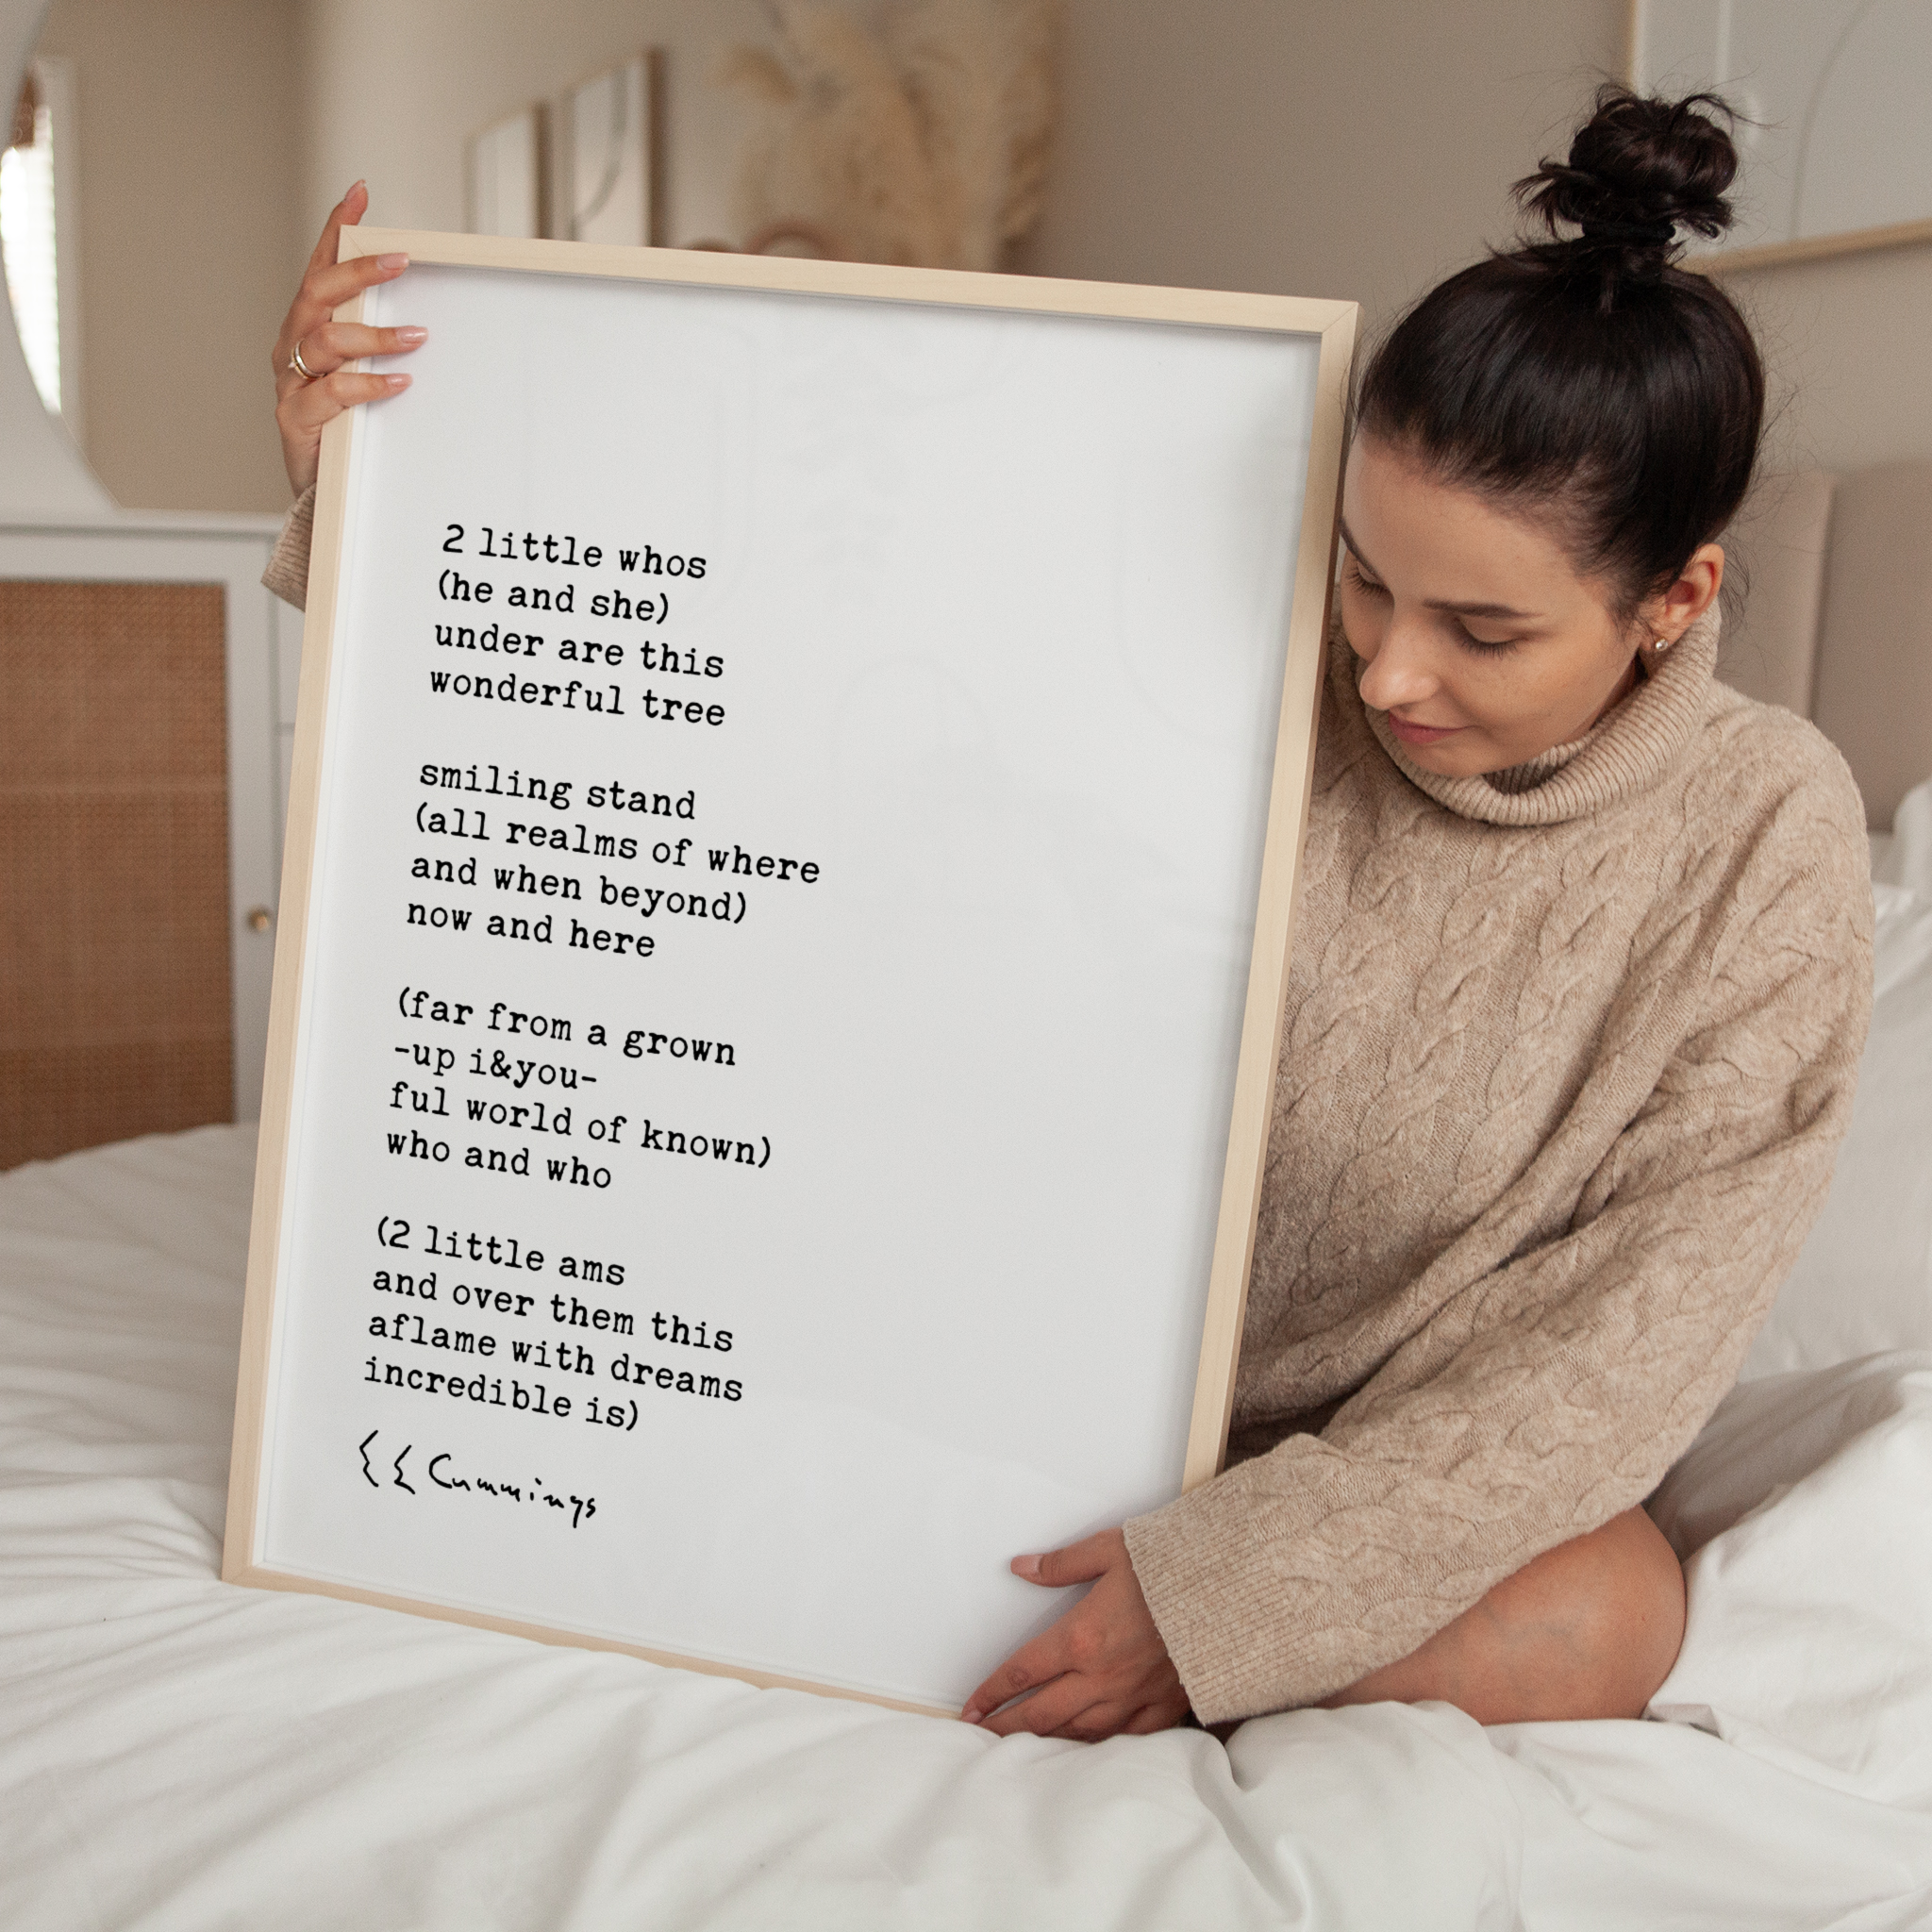 2 little whos
(he and she)
under are this
wonderful tree
smiling stand
(all realms of where
and when beyond)
now and here
(far from a grown
-up i&you-
ful world of known)
who and who
(2 little ams
and over them this
aflame with dreams
incredible is)
EE Cummings